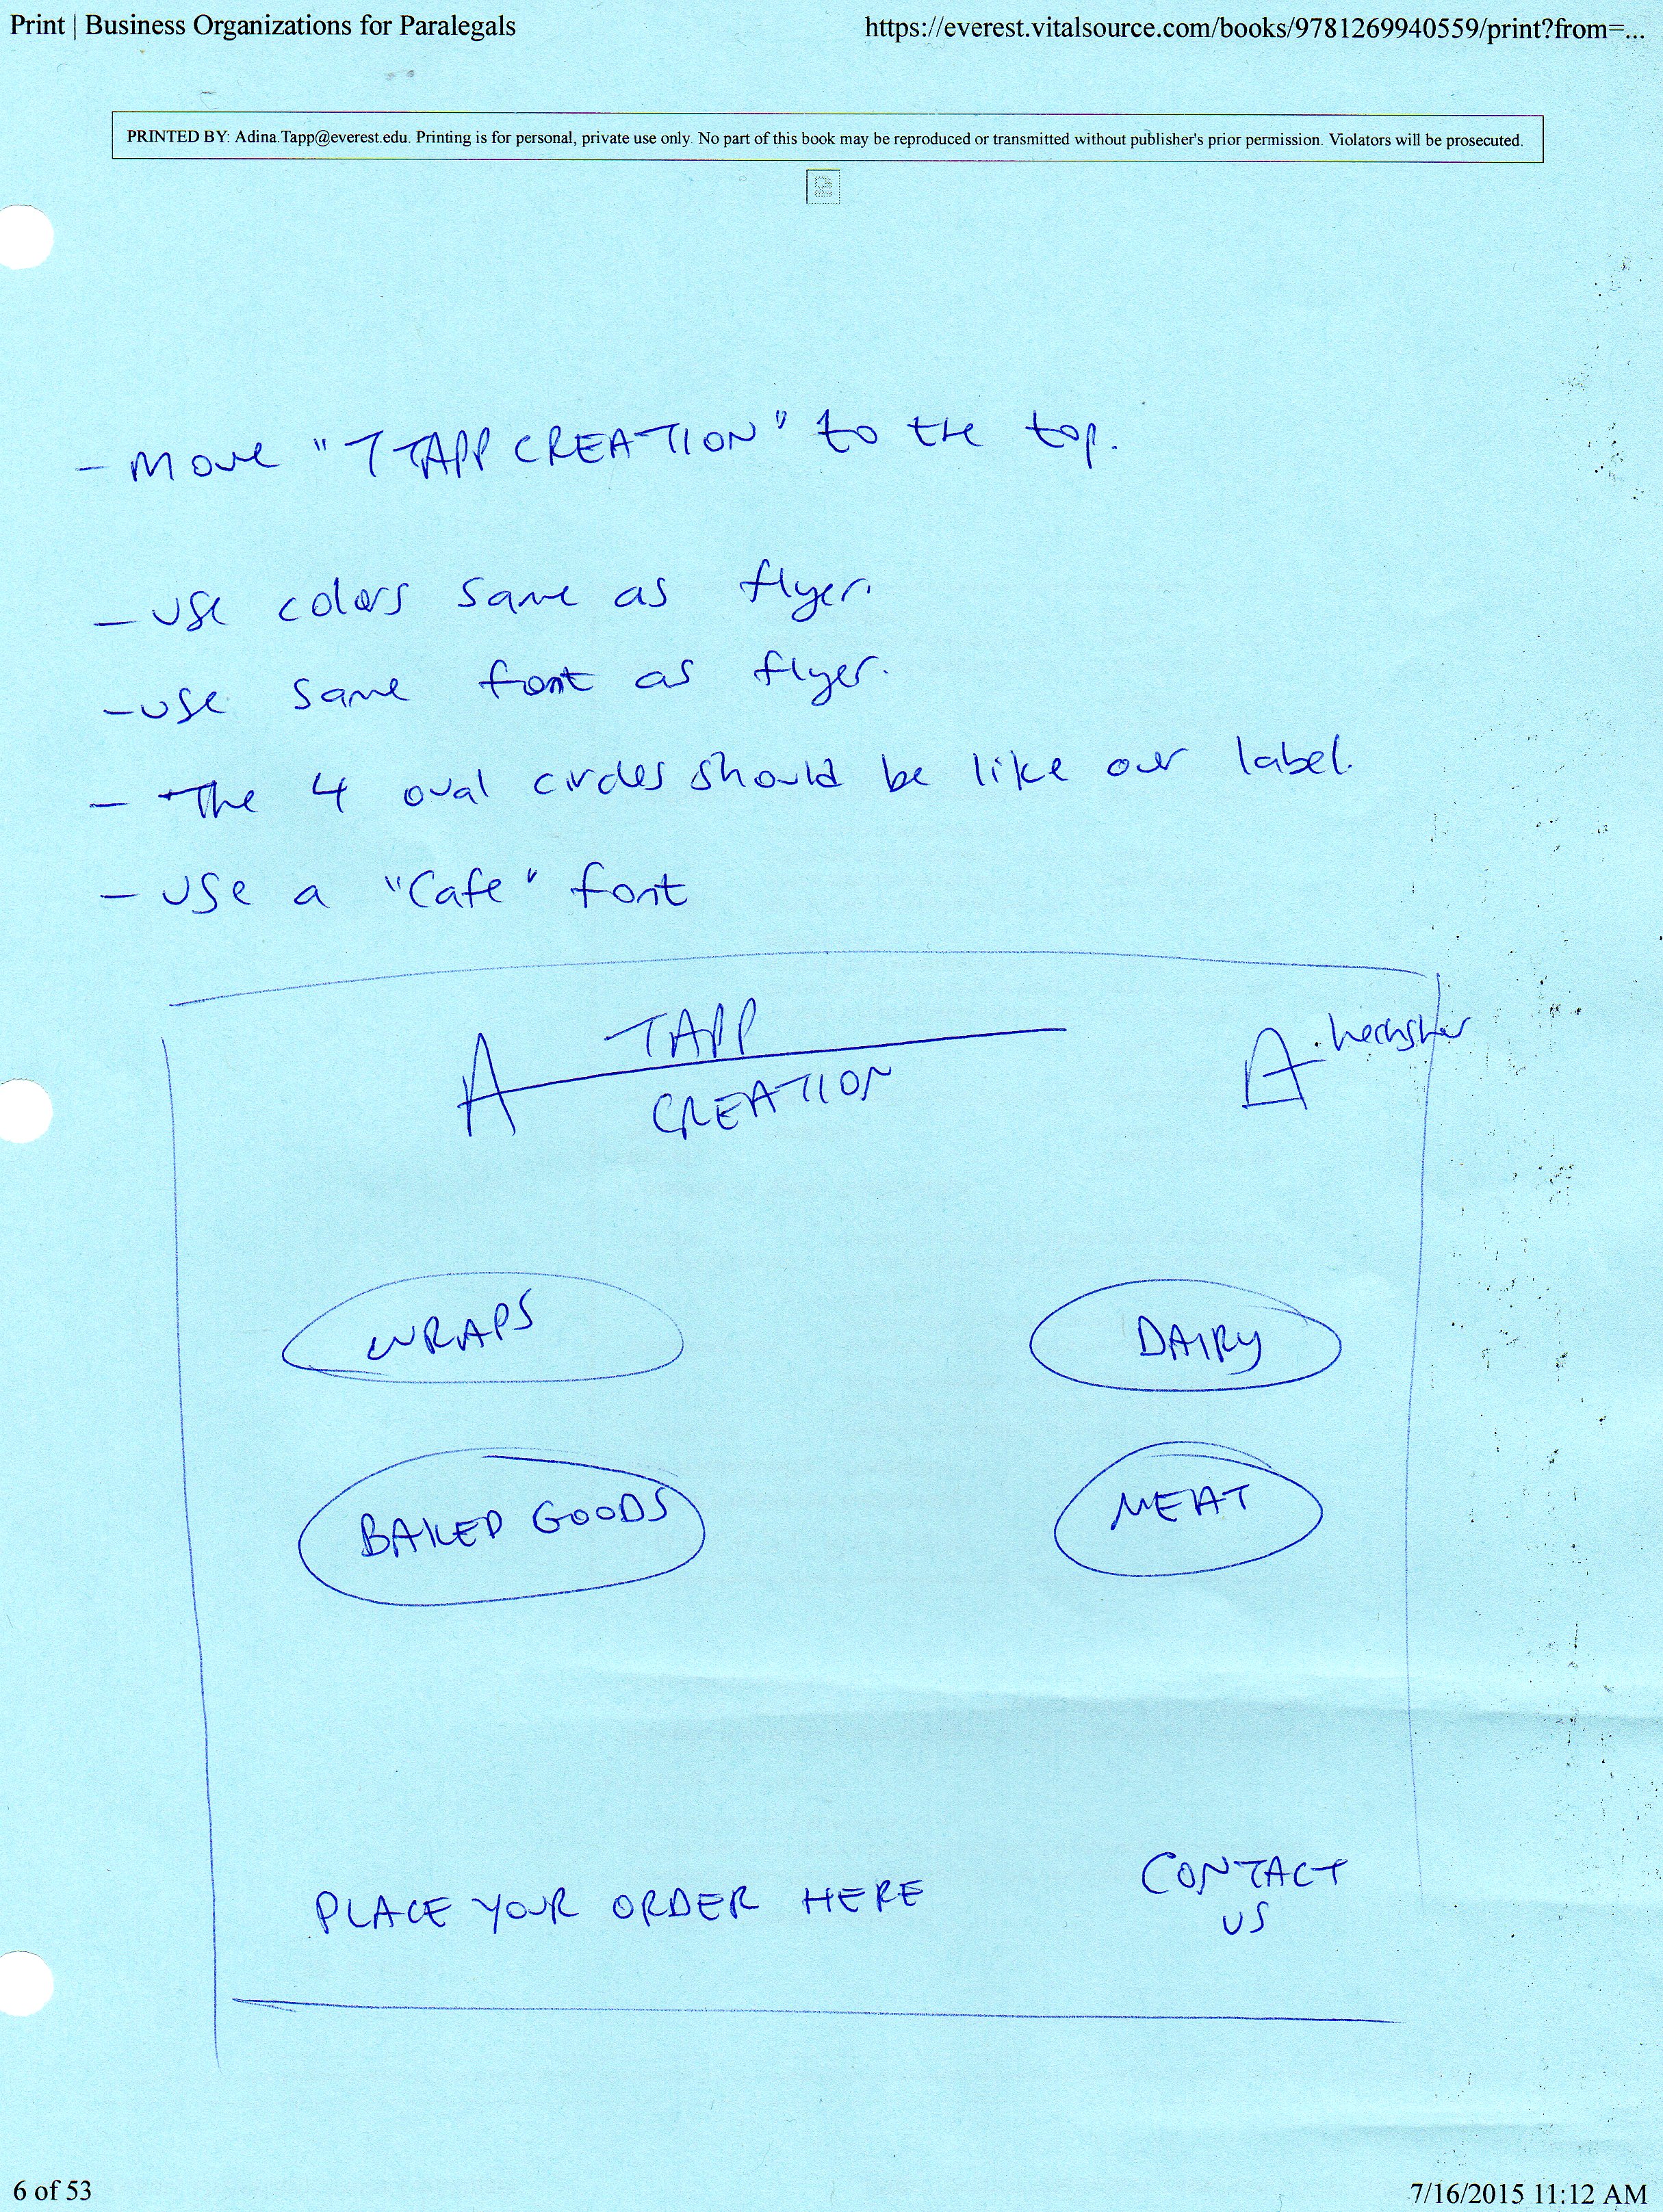 Print | Business Organizations for Paralegals
https://everest.vitalsource.com/books/9781269940559/print?from=...
PRINTED BY: Adina.Tapp@everest.edu. Printing is for personal, private use only. No part of this book may be reproduced or transmitted without publisher's prior permission. Violators will be prosecuted.
- Move "T TAPP CREATION" to the top.
- Use colors same as flyer.
- Use same font as flyer.
- The 4 oval circles should be like our label.
- Use a "Cafe" font
A TAPP
CREATION
A hechsher
WRAPS
DAIRY
BAKED GOODS
MEAT
PLACE YOUR ORDER HERE
CONTACT
US
6 of 53
7/16/2015 11:12 AM